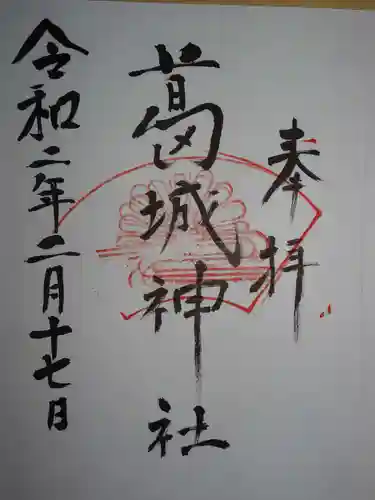 奉拝
葛城神社
令和二年二月十七日